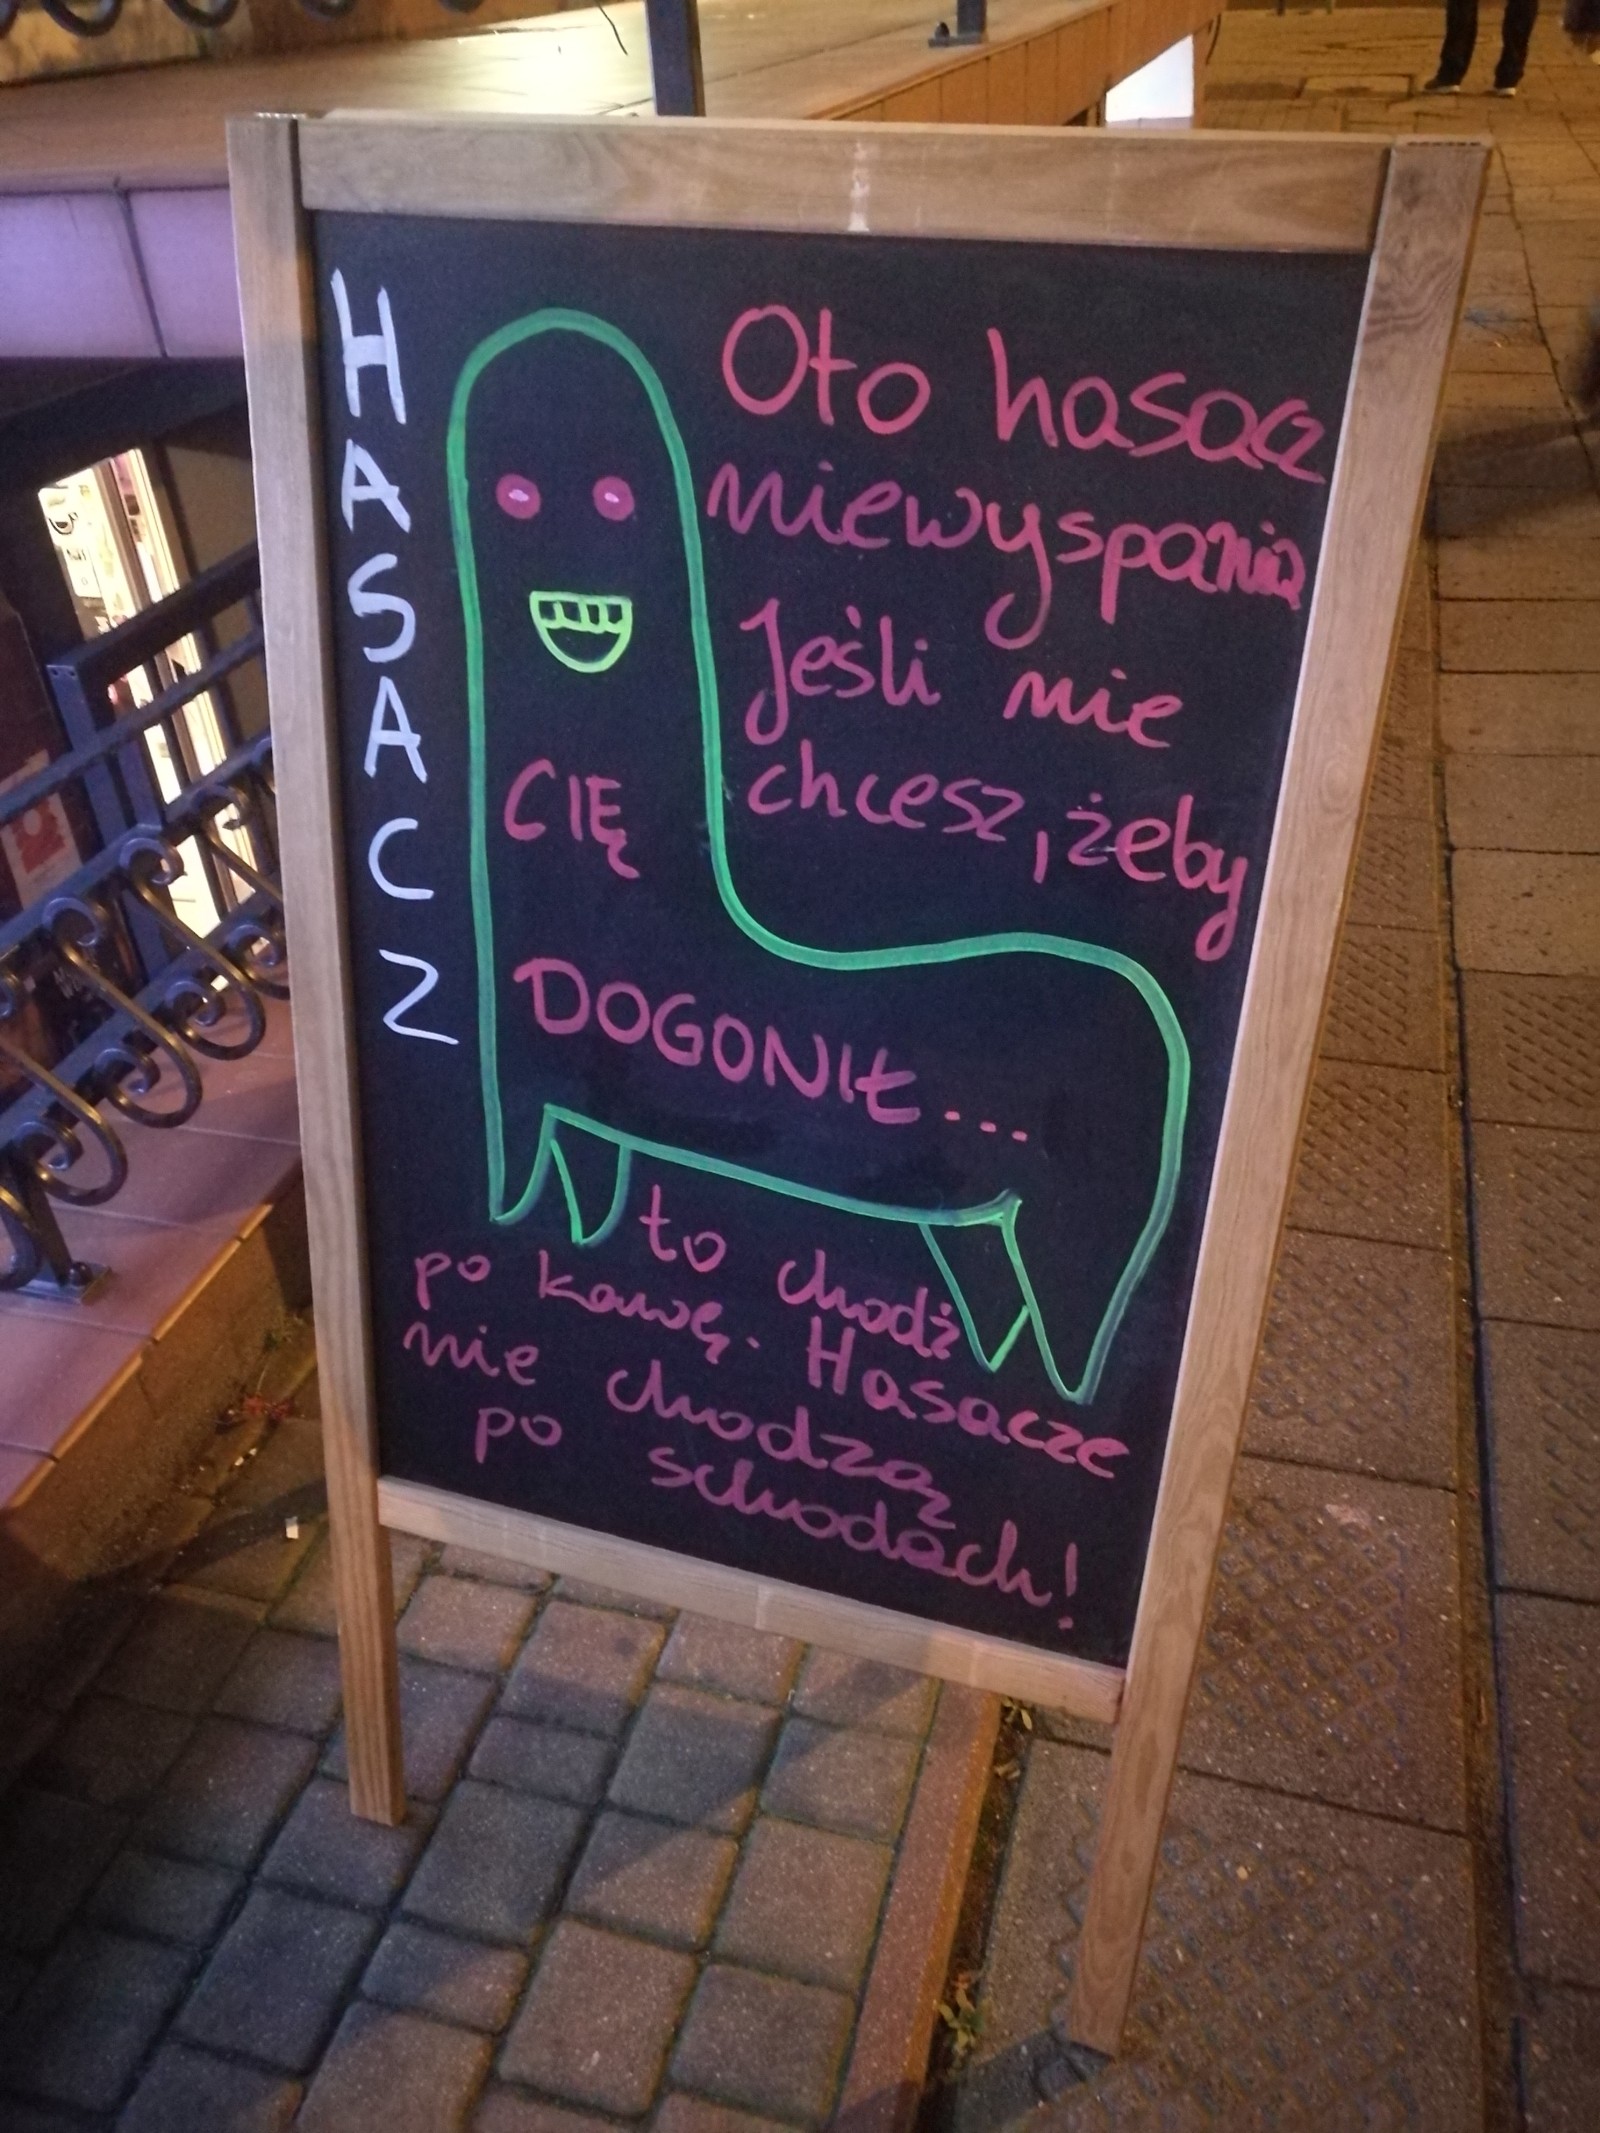 HASACZ
Oto hasacz
niewyspania
Jeśli nie
chcesz, żeby
CIĘ
DOGONIŁ...
to chodź
po kawę. Hasacze
nie chodzą
po schodach!